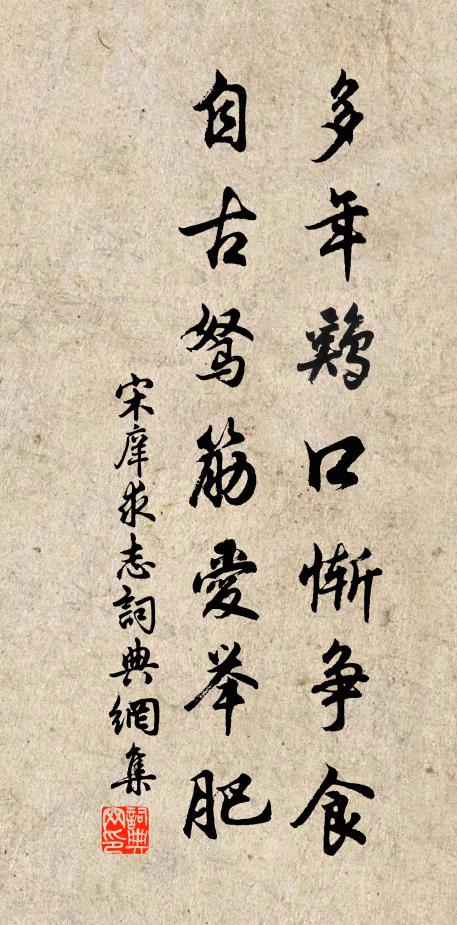 多年鷄口慚争食
自古駑筋愛举肥
宋庠求志詞典網集
詞典网印